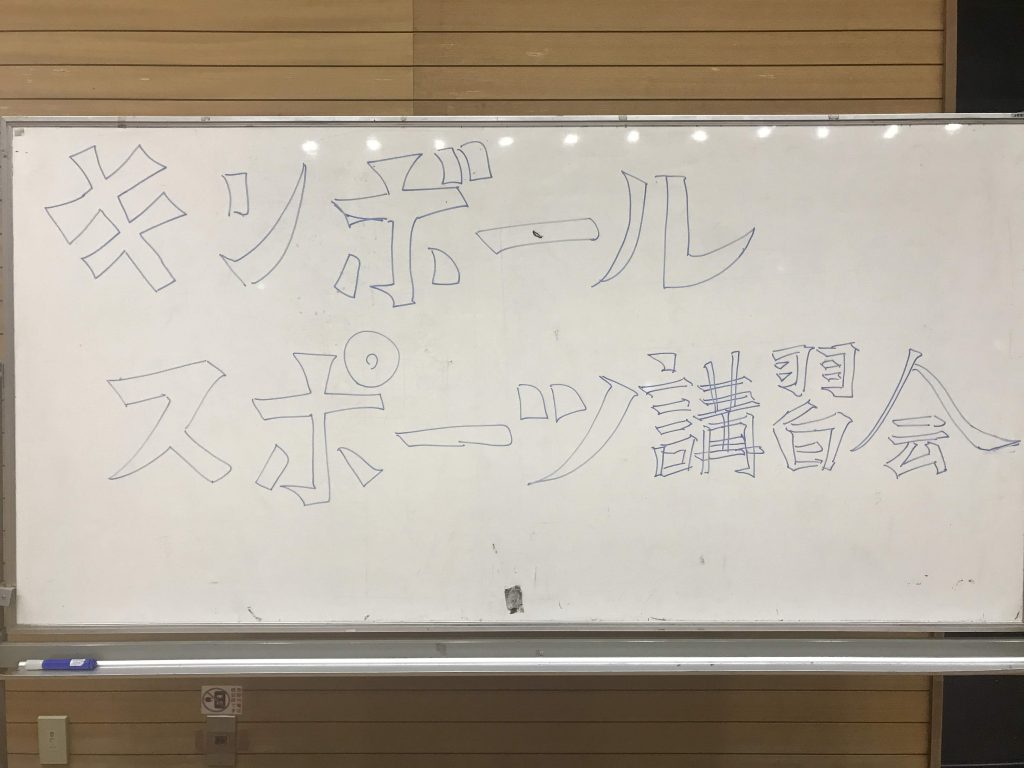 キンボール
スポーツ講習会